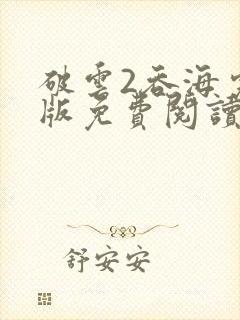 破雲2吞海完
版免費閱讀
舒安安